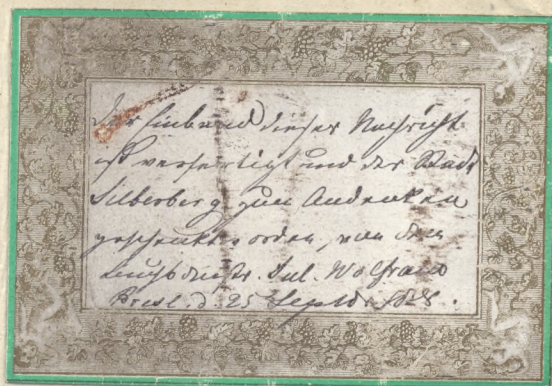 Der Einband dieser Nachricht
ist verfertigt und der Stadt
Silberberg zum Andenken
geschenkt worden, von dem
Jul. Wolfram
Bresl. d. 25 Septbr.